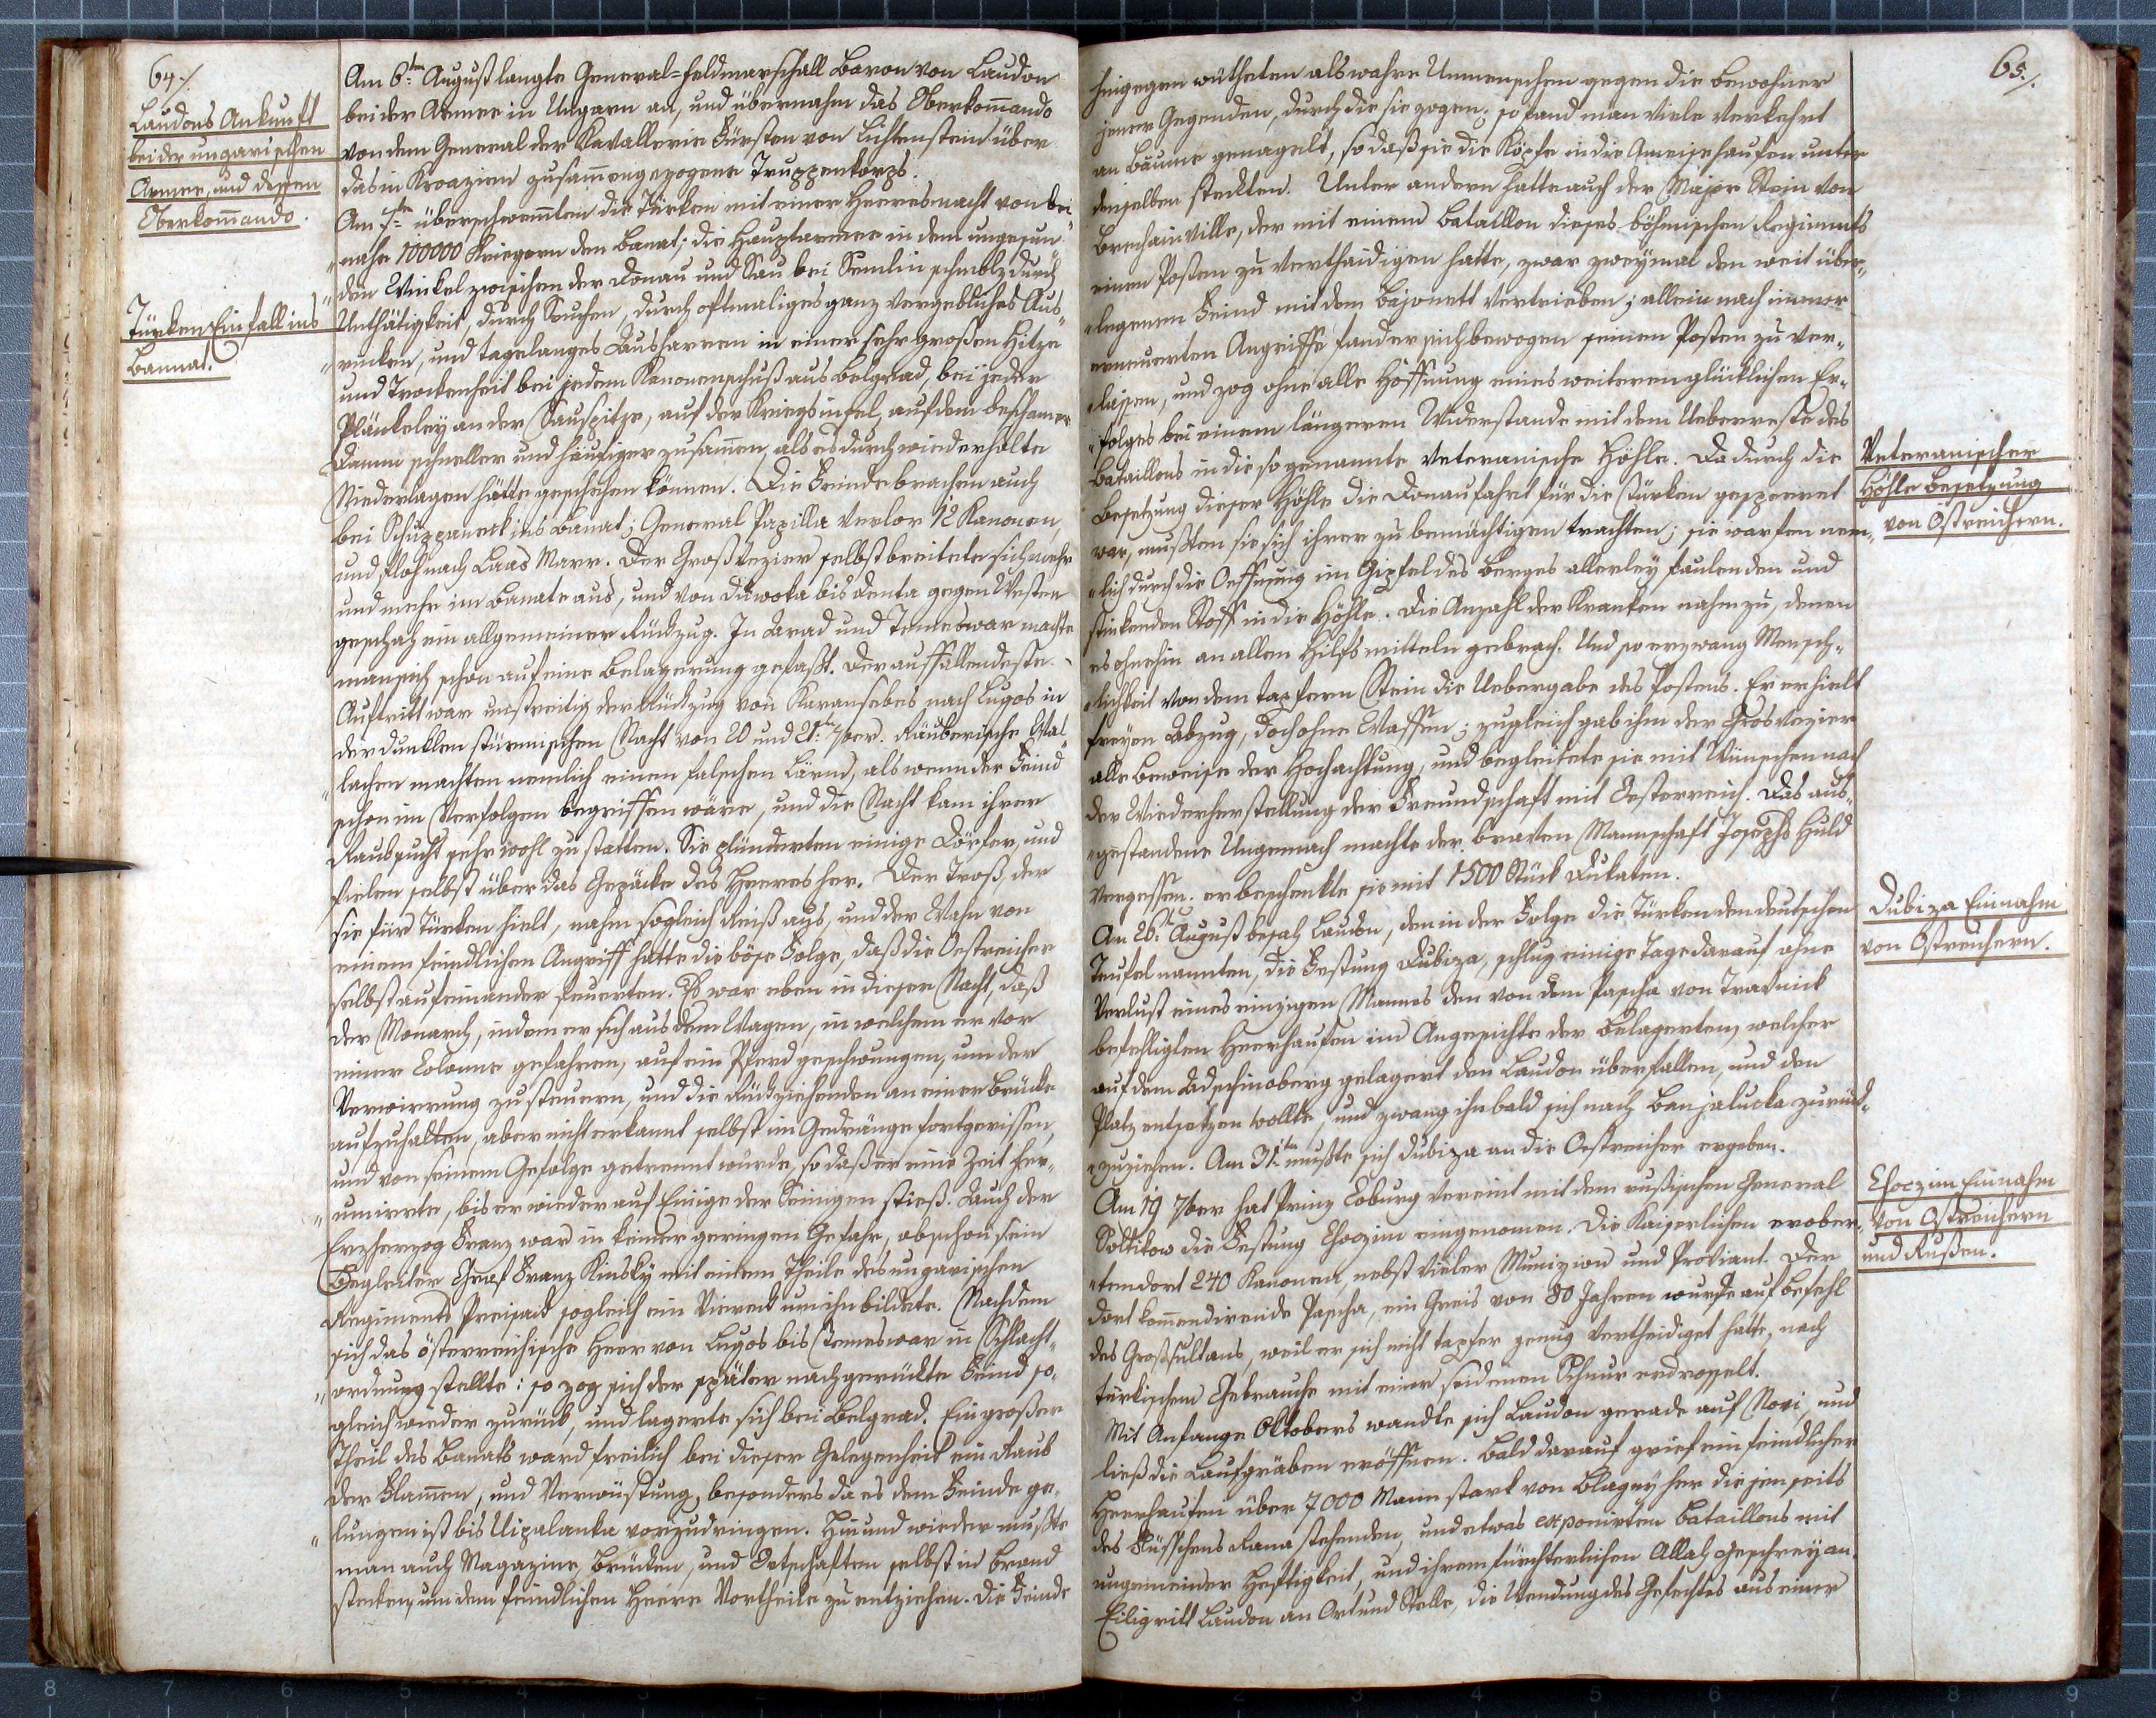 64./.
Laudons Ankunft
bei der ungarischen
Armee, und dessen
Oberkom̄ando.
Türken Einfall ins
Bannat.
Am 6:ten August langte General=Feldmarschall Baron von Laudon
bei der Armee in Ungarn an, und übernahm das Oberkom̄ando
von dem General der Kavallerie Fürsten von Lichtenstein über
das in Kroazien zusam̄engezogene Truppenkorps.
Am 7ten überschwem̄ten die Türken mit einer Heeresmacht von bei„
„nahe 100000 Kriegern den Banat; die Hauptarmee in dem ungesun„
„den Winkel zwischen der Donau und Sau bei Semlin schmolz durch
Unthätigkeit, durch Seuchen, durch oftmaliges ganz vergebliches Aus„
„rucken, und tagelanges Ausharren in einer sehr großen Hitze
und Trockenheit bei jedem Kanonenschuß aus Belgrad, bei jeder
Plänkeley an der Sauspitze, auf der Kriegsinsel, auf dem Beschaner
Damm schneller und häufiger zusam̄en, als es durch wiederholte
Niederlagen hätte geschehen können. Die Feinde brachen auch
bei Schuppaneck ins Banat; General Papilla verlor 12 Kanonen,
und floh nach Laas Marr. Der Großvezier selbst breitete sich mehr
und mehr im Banate aus, und von Duwoka bis Denta gegen Westen
geschah ein allgemeiner Rückzug. In Arad und Temeswar machte
man sich schon auf eine Belagerung gefaßt. Der auffallendeste
Auftritt war unstreitig der Rückzug von Karansebes nach Lugos in
der dunklen stürmischen Nacht von 20 und 21:ten 7ber. Räuberische Wal„
„lachen machten nemlich einen falschen Lärm, als wenn der Feind
schon im Verfolgen begriffen wäre, und die Nacht kam ihrer
Raubsucht sehr wohl zu statten. Sie plünderten einige Dörfer, und
fielen selbst über das Gepäcke des Heeres her. Der Troß, der
sie für Türken hielt, nahm sogleich Reiß aus, und der Wahn von
einem feindlichen Angriff hatte die böse Folge, daß die Oestreicher
selbst aufeinander feuerten. Es war eben in dieser Nacht, daß
der Monarch, indem er sich aus dem Wagen, in welchem er vor
einer Colonne gefahren, auf ein Pferd geschwungen, um der
Verwirrung zu steuern, und die Rückziehenden an einer Brücke
aufzuhalten, aber nicht erkannt selbst im Gedränge fortgerissen,
und von seinem Gefolge getrennt wurde, so daß er eine Zeit her„
„umirrte, bis er wieder auf Einige der Seinigen stieß. Auch der
Erzherzog Franz war in keiner geringen Gefahr, obschon sein
Begleiter Graf Franz Kinsky mit einem Theile des ungarischen
Regiments Preisach sogleich ein Viereck um ihn bildete. Nachdem
sich das österreichische Heer von Lugos bis Temeswar in Schlacht„
„ordnung stellte: so zog sich der später nachgerückte Feind so„
gleich wieder zurück, und lagerte sich bei Belgrad. Ein großer
Theil des Banats ward freilich bei dieser Gelegenheit ein Raub
der Flam̄en, und Verwüstung, besonders da es dem Feinde ge„
„lungen ist bis Uipalanka vorzudringen. Hin und wieder mußte
man auch Magazine, Brücken, und Ortschaften selbst in Brand
stecken, um dem feindlichen Heere Vortheile zu entziehen. Die Feinde
65./.
hingegen wütheten als wahre Unmenschen gegen die Bewohner
jener Gegenden, durch die sie zogen; so fand man viele verkehrt
an Bäume genagelt, so daß sie die Köpfe in die Ameisehaufen unter
denselben steckten. Unter andern hatte auch der Major Stein von
Brechainville, der mit einem Bataillon dieses böhmischen Regiments
einen Posten zu verthaidigen hatte, zwar zweymal den weit über„
„legenen Feind mit dem Bajonett vertrieben; allein nach immer
erneuerten Angriffe fand er sich bewogen seinen Posten zu ver„
„lassen, und zog ohne alle Hoffnung eines weiteren glücklichen Er„
„folges bei einem längeren Widerstande mit dem Ueberreste des
Bataillons in die so genannte Veteranische Höhle. Da durch die
Besetzung dieser Höhle die Donaufahrt für die Türken gesperret
war, mußten sie sich ihrer zu bemächtigen trachten; sie warfen nem„
„lich durch die Oeffnung im Gipfel des Berges allerley faulenden und
stinkenden Stoff in die Höhle. Die Anzahl der Kranken nahm zu, denen
es ohnehin an allen Hilfsmitteln gebrach. Und so erzwang Mensch„
„lichkeit von dem tapfern Stein die Uebergabe des Postens. Er erhielt
freyen Abzug, doch ohne Waffen; zugleich gab ihm der Grosvezier
alle Beweise der Hochachtung, und begleitete sie mit Wünschen nach
der Wiederherstellung der Freundschaft mit Oesterreich. Das aus„
„gestandene Ungemach machte der braven Mannschaft Josephs Huld
vergessen. er beschenkte sie mit 1500 Stück Dukaten.
An 26:t August besah Laudon, den in der Folge die Türken den deutschen
Teufel nannten, die Festung Dubiza, schlug einige Tage darauf ohne
Verlust eines einzigen Mannes den von dem Pascha von Travnick
befehligten Heerhaufen im Angesichte der Belagerten, welcher
auf dem Adschinoberg gelagert den Laudon überfallen, und den
Platz entsetzen wollte, und zwang ihn bald sich nach Banjalucka zurück„
„zuziehen. Am 31:ten mußte sich Dubiza an die Oestreicher ergeben.
Am 19 7ber hat Prinz Coburg vereint mit dem rußischen General
Soltikow die Festung Choczim eingenomen. Die Kaiserlichen erober„
„ten dort 240 Kanonen, nebst vieler Munizion und Proviant. Der
dort kom̄endirende Pascha, ein Greis von 80 Jahren wurde auf Befehl
des Großsultans, weil er sich nicht tapfer genug vertheidiget hatte, nach
türkischem Gebrauche mit einer seidenen Schnur erdrosselt.
Mit Anfange Oktobers wandte sich Laudon gerade auf Novi, und
ließ die Laufgräben eröffnen. Bald darauf grief ein feindlicher
Heerhaufen über 7000 Mann stark von Blagay her die jenseits
des Flüsschens Rana stehenden, und etwas exponirten Bataillons mit
ungemeiner Heftigkeit, und ihrem fürchterlichen Allah Geschrey an.
Eilig ritt Laudon an Ort und Stelle, die Wendung des Gefechtes aus einer
Veteranischer
Höhle Besetzung
von Östreichern.
Dubiza Einnahm
von Östreichern.
Choczim Einnahm
von Östreichern
und Rußen.